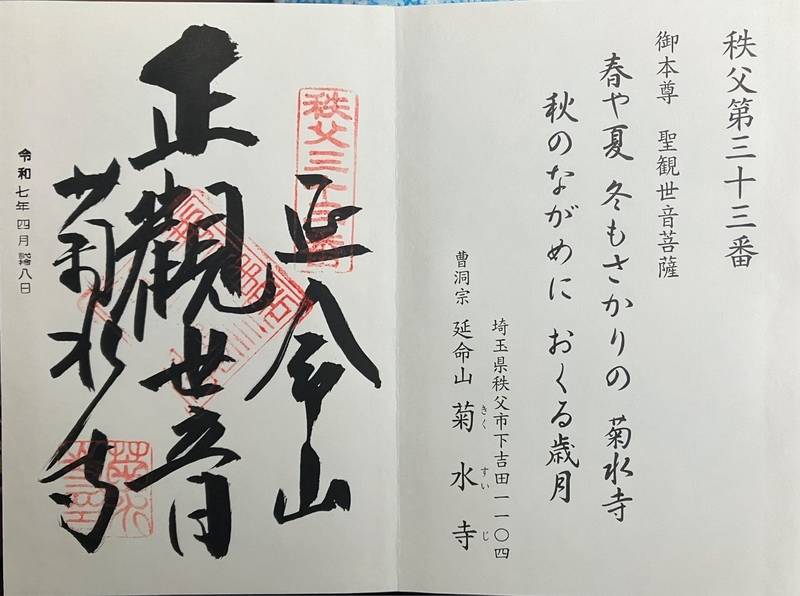 秩父第三十三番
御本尊 聖観世音菩薩
春や夏 冬もさかりの 菊水寺
秋のながめに おくる歳月
埼玉県秩父市下吉田一一〇四
曹洞宗 延命山 菊水寺
きく すい じ
秩父三十三番
延命山
正觀世音
菊水寺
令和七年四月 八日